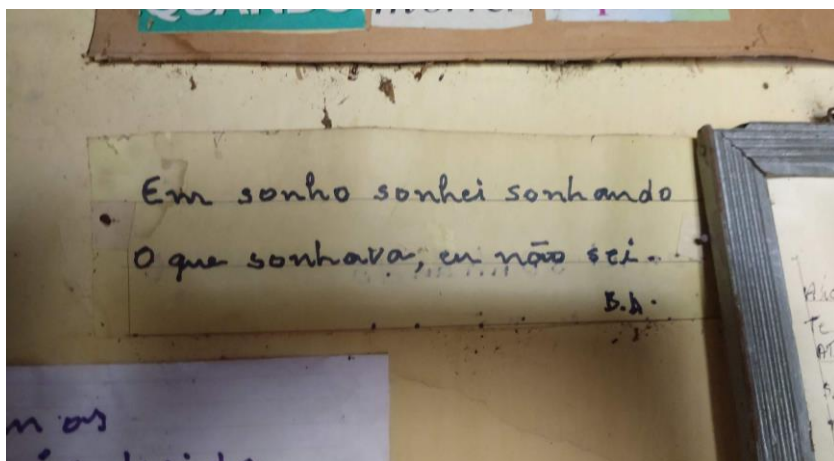 QUANDO
Em sonho sonhei sonhando
O que sonhava, eu não sei.
B.A.
m os